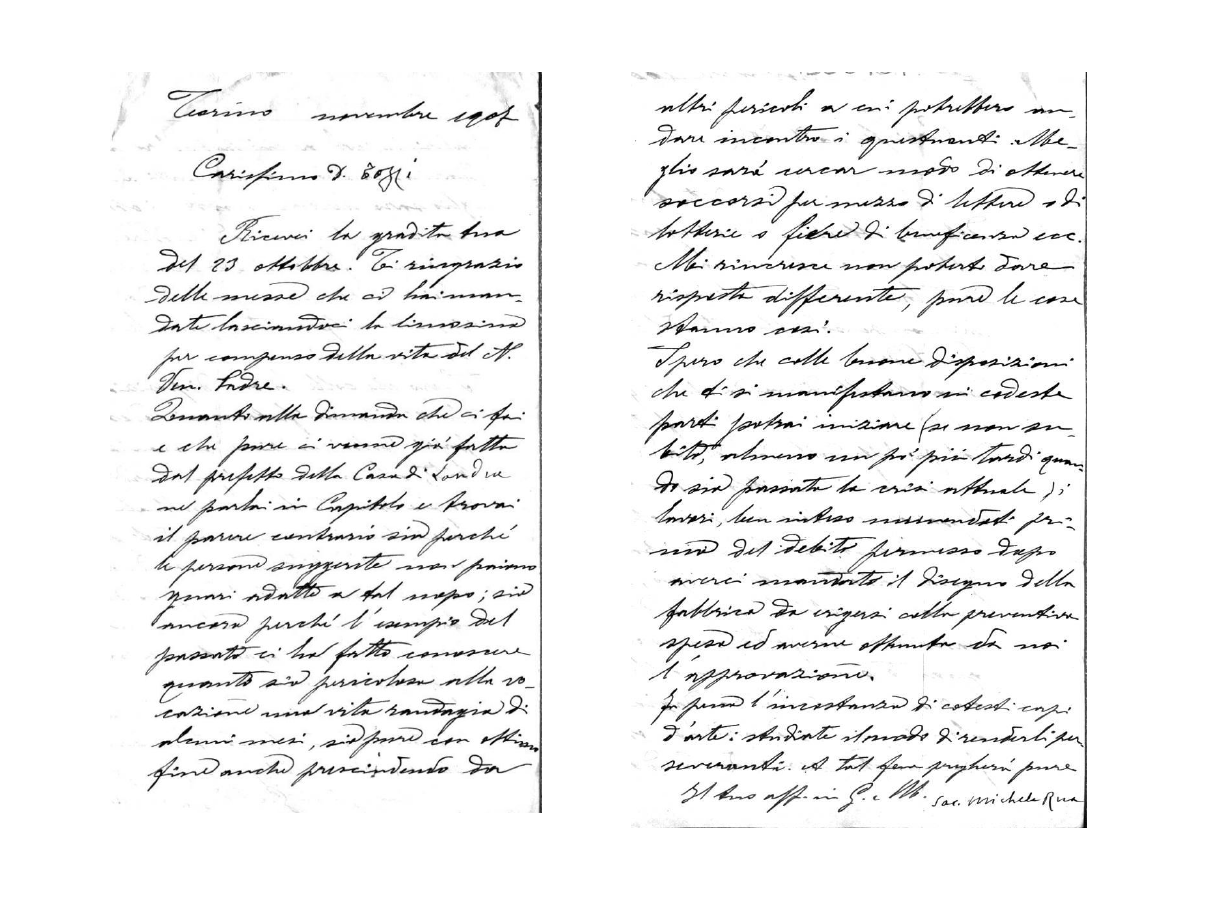 Torino novembre 1907
Carissimo D. Tozzi
Ricevei la gradita tua
del 23 ottobre. Ti ringrazio
delle messe che ci hai man-
date lasciandoci la limosina
per compenso della vita del N.
Ven. Padre.
Quanto alla dimanda che ci fai
e che pure ci venne già fatta
dal prefetto della Casa di Londra
ne parlai in Capitolo e trovai
il parere contrario sia perché
le persone suggerite non paiono
guari adatte a tal uopo; sia
ancora perché l'esempio del
passato ci ha fatto conoscere
quanto sia pericolosa alla vo-
cazione una vita randagia di
alcuni mesi, sia pure con ottimo
fine anche prescindendo da
altri pericoli a cui potrebbero an-
dare incontro i questuanti. Me-
glio sarà cercar modo di ottenere
soccorsi per mezzo di lettere o di
lotterie o fiere di beneficenza ecc.
Mi rincresce non poterti dare
risposta differente, pure le cose
stanno così.
Spero che colle buone disposizioni
che ti si manifestano in codeste
parti potrai iniziare (se non su-
bito, almeno un po' più tardi quan-
do sia passata la crisi attuale) i
lavori, ben inteso muniendoti pri-
ma del debito permesso dopo
averci mandato il disegno della
fabbrica da erigersi colla preventiva
spesa ed averne ottenuta da noi
l'approvazione.
Fa pena l'incostanza di cotesti capi
d'arte: studiate il modo di renderli per-
severanti. A tal fine pregherà pure
Il tuo aff. in G. e M. Sac. Michele Rua